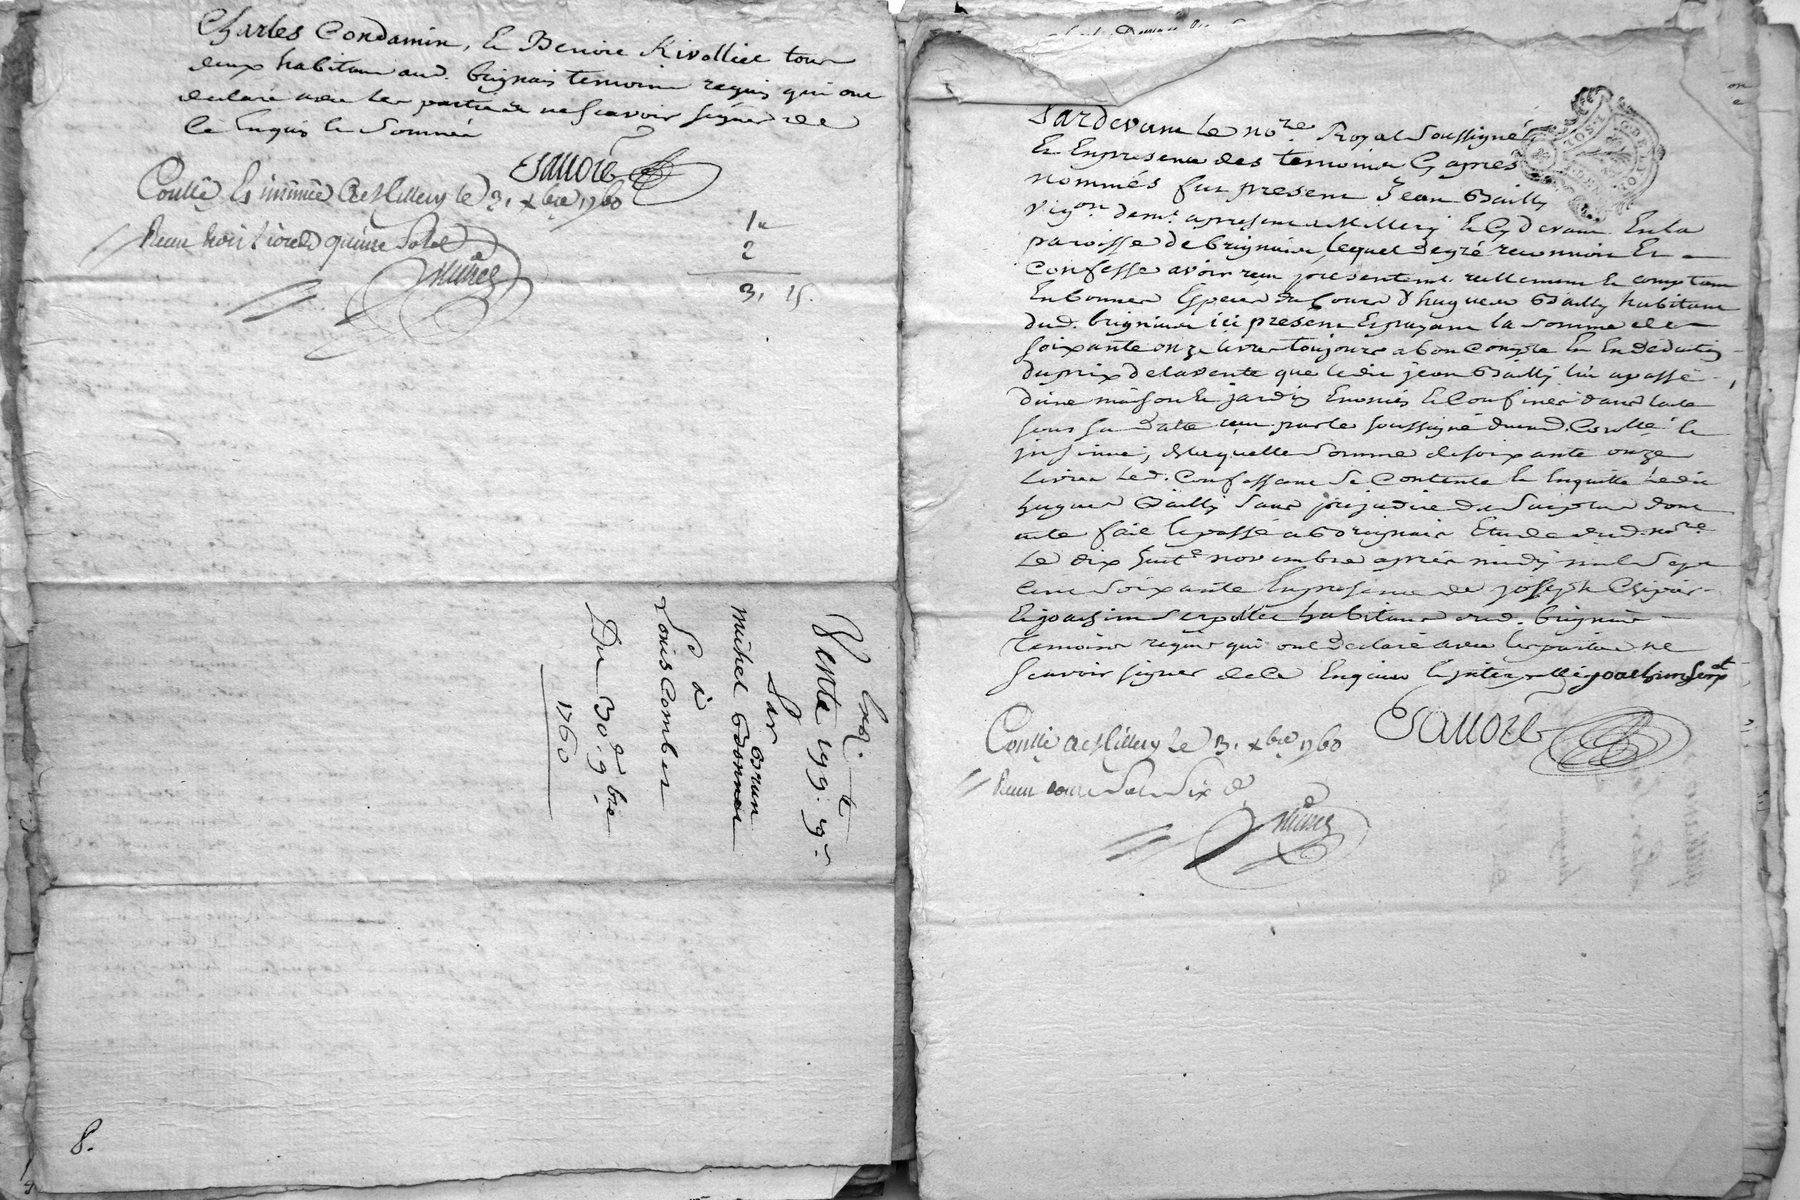 Charles Condamin, et Benoit Rivolliet tous
deux habitans aud. brignais temoins requis qui ont
declaré avec les parties ne scavoir signer de
ce Enquis et sommés
Esauoré
Collé Et insinué a Millery le 31 xbre 1760
Recu trois livres quinze sols
1 4
2
3, 15.
Vente
par
michel
à
Louis Combet
Du 30e. 9bre
1760
8.
Pardevant le nore Royal soussigné
Et En presence des temoins Cy apres
nommés fut present Jean Bailly
vigon demt. apresent a Millery Et Cy devant En la
paroisse de brignais, lequel de gré reconnoit Et
Confesse avoir recu presentemt. reellement Et comptant
En bonnes Especes de Cours d'hugues Bailly habitant
dud. brignais ici present Et payant la somme de
soixante onze livres toujours a bon compte Et En deduction
du prix de la vente que ledit jean Bailly lui a passé
d'une maison Et jardin Enoncés Et Confinés dans lacte
sous sa date recu par le soussigné duement Collé Et
insinué, de laquelle somme de soixante onze
Livres led. Confessant se Contente Et En quitte ledit
hugues Bailly sans prejudice du surplus dont
acte fait Et passé a Brignais Etude dud. nore
Le dix huite novembre après midy mil sept
Cent soixante En presence de joseph
Et joachim serpollet habitans aud. brignais
temoins requis qui ont declaré avec les parties ne
scavoir signer de ce Enquis
Esauoré
Collé a Millery le 31 xbre 1760
Recu onze sols six d